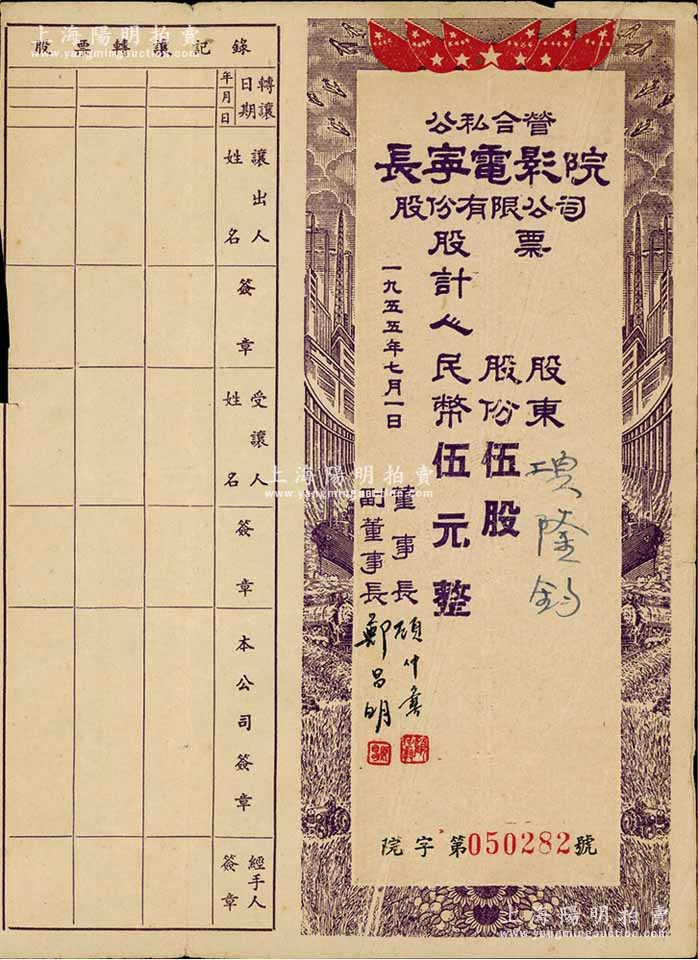 公私合營
長寧電影院
股份有限公司
股票
股東 項隆鈞
股份伍股
股計人民幣伍元整
一九五五年七月一日
董事長 顧仲彝
副董事長 鄭昌明
院字第050282號
股票轉讓記錄
轉讓日期
年月日
讓出人姓名
簽章
受讓人姓名
簽章
本公司簽章
經手人簽章
上海陽明拍賣
www.yangmingauction.com
上海陽明拍賣
www.yangmingauction.com
上海陽明拍賣
www.yangmingauction.com
上海陽明拍賣
www.yangmingauction.com
上海陽明拍賣
www.yangmingauction.com